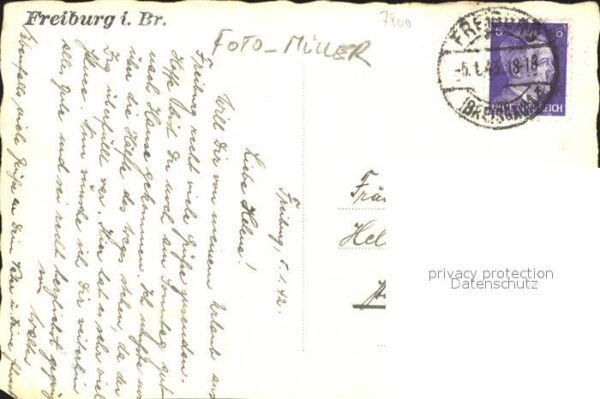 Freiburg i. Br.
7800
FOTO-MÜLLER
FREIBURG
-5.1.43.18-19
(BREISGAU)
6
REICH
Freiburg, 5.1.42.
Liebe Helene!
Will Dir von meinem Urlaub aus
Freiburg recht viele Grüße zusenden.
Hoffe, bist Du noch am Sonntag gut
nach Hause gekommen. Ich mußte
über die Hälfte des Weges stehen, da der
Zug überfüllt war. Hier hat es sehr viel
Nun wünsche ich Dir weiterhin
alles Gute und sei recht herzlich gegrüßt
von
Ebenfalls viele Grüße an
Fräu
Hel
privacy protection
Datenschutz